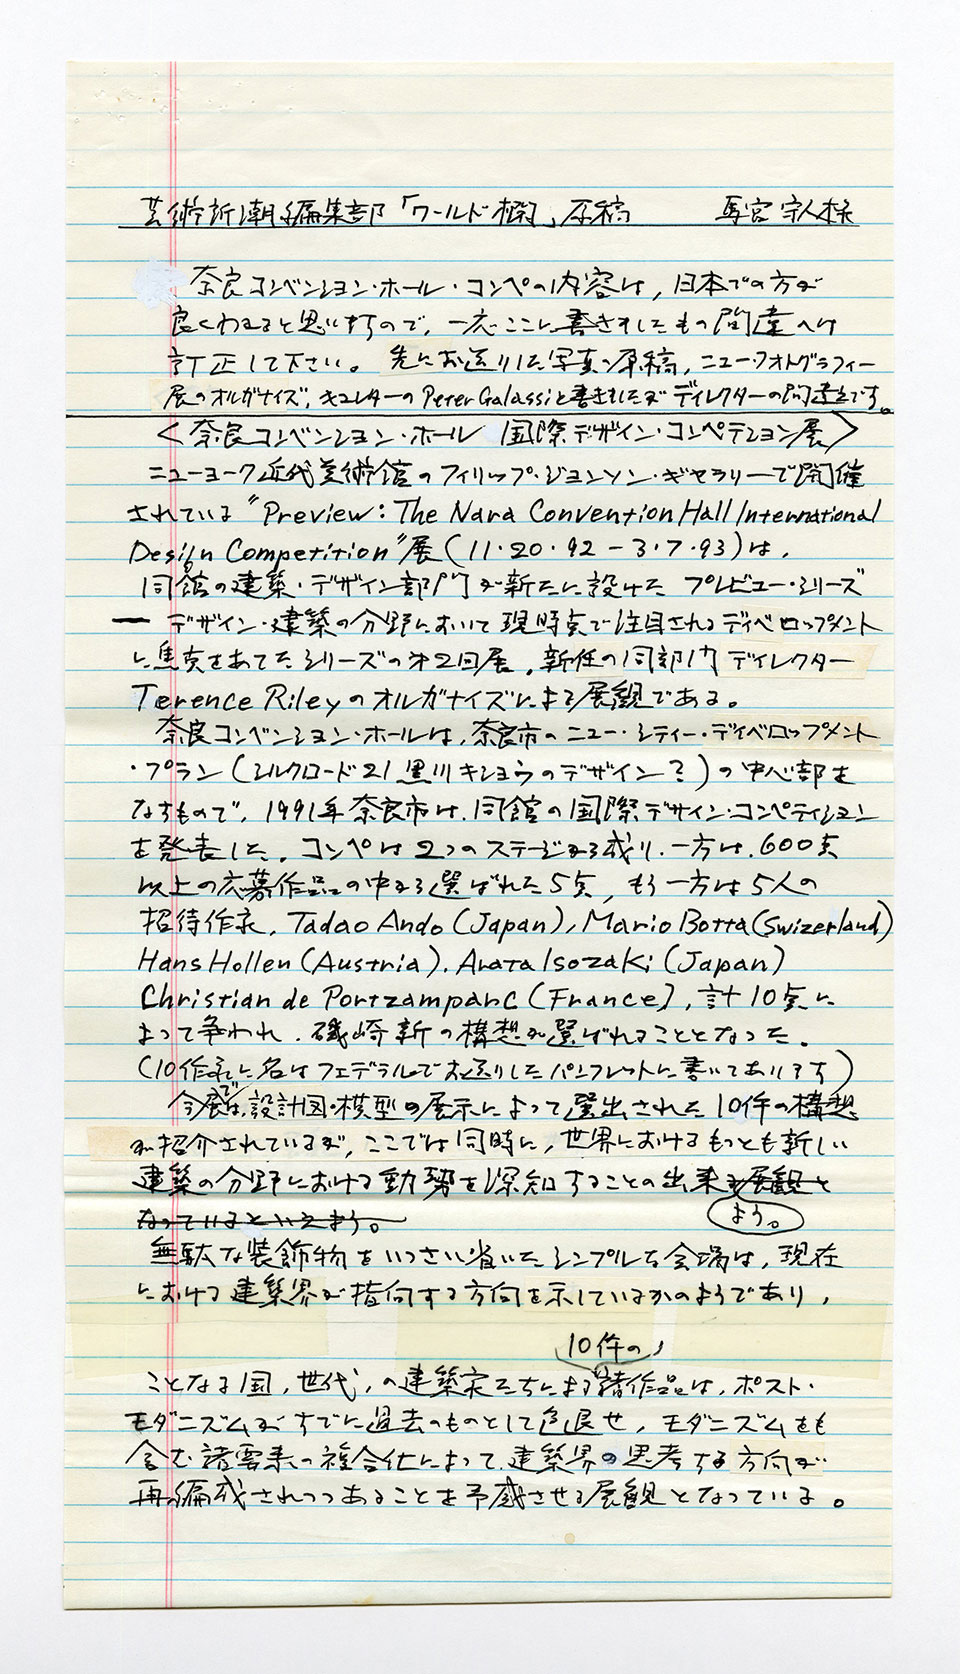 芸術新潮編集部「ワールド欄」原稿 馬宮宗人様
奈良コンベンション・ホール・コンペの内容は,日本での方が
良くわかると思いますので,一応ここに書きましたもの間違へは
訂正して下さい。先にお送りした写真の原稿,ニュー・フォトグラフィー
展のオルガナイズ,キュレターのPeter Galassiと書きましたがディレクターの間違えです。
<奈良コンベンション・ホール 国際デザイン・コンペテション展>
ニューヨーク近代美術館のフィリップ・ジョンソン・ギャラリーで開催
されている"Preview: The Nara Convention Hall International
Design Competition"展(11・20・92−3・7・93)は,
同館の建築・デザイン部門が新たに設けた プレビュー・シリーズ
ー デザイン・建築の分野において現時点で注目されるディベロップメント
に焦点をあてたシリーズの才2回展,新任の同部門ディレクター
Terence Rileyのオルガナイズによる展観である。
奈良コンベンション・ホールは,奈良市のニュー・シティー・ディベロップメント
・プラン(シルクロード21 黒川キショウのデザイン?)の中心部を
なすもので,1991年奈良市は,同館の国際デザイン・コンペティション
を発表した。コンペは2つのステージから成り,一方は,600点
以上の応募作品の中から選ばれた5点,もう一方は5人の
招待作家,Tadao Ando(Japan),Mario Botta(Swizerland)
Hans Hollen(Austria),Arata Isozaki(Japan)
Christian de Portzamparc(France),計10点に
よって争われ,磯崎新の構想が選ばれることとなった。
(10作家に名はフェデラルでお送りしたパンフレットに書いてあります)
今展では,設計図・模型の展示によって選出された10件の構想
が紹介されているが,ここでは同時に,世界におけるもっとも新しい
建築の分野における動勢を深知することの出来る展観と
なっているといえよう。 よう。
無駄な装飾物をいっさい省いたシンプルな会場は,現在
における建築界が指向する方向を示しているかのようであり,
10件の
ことなる国,世代,の建築家たちによる諸作品は,ポスト・
モダニズムがすでに過去のものとして色退せ,モダニズムをも
含む諸要素の複合化によって,建築界の思考する方向が
再編成されつつあることを予感させる展観となっている。